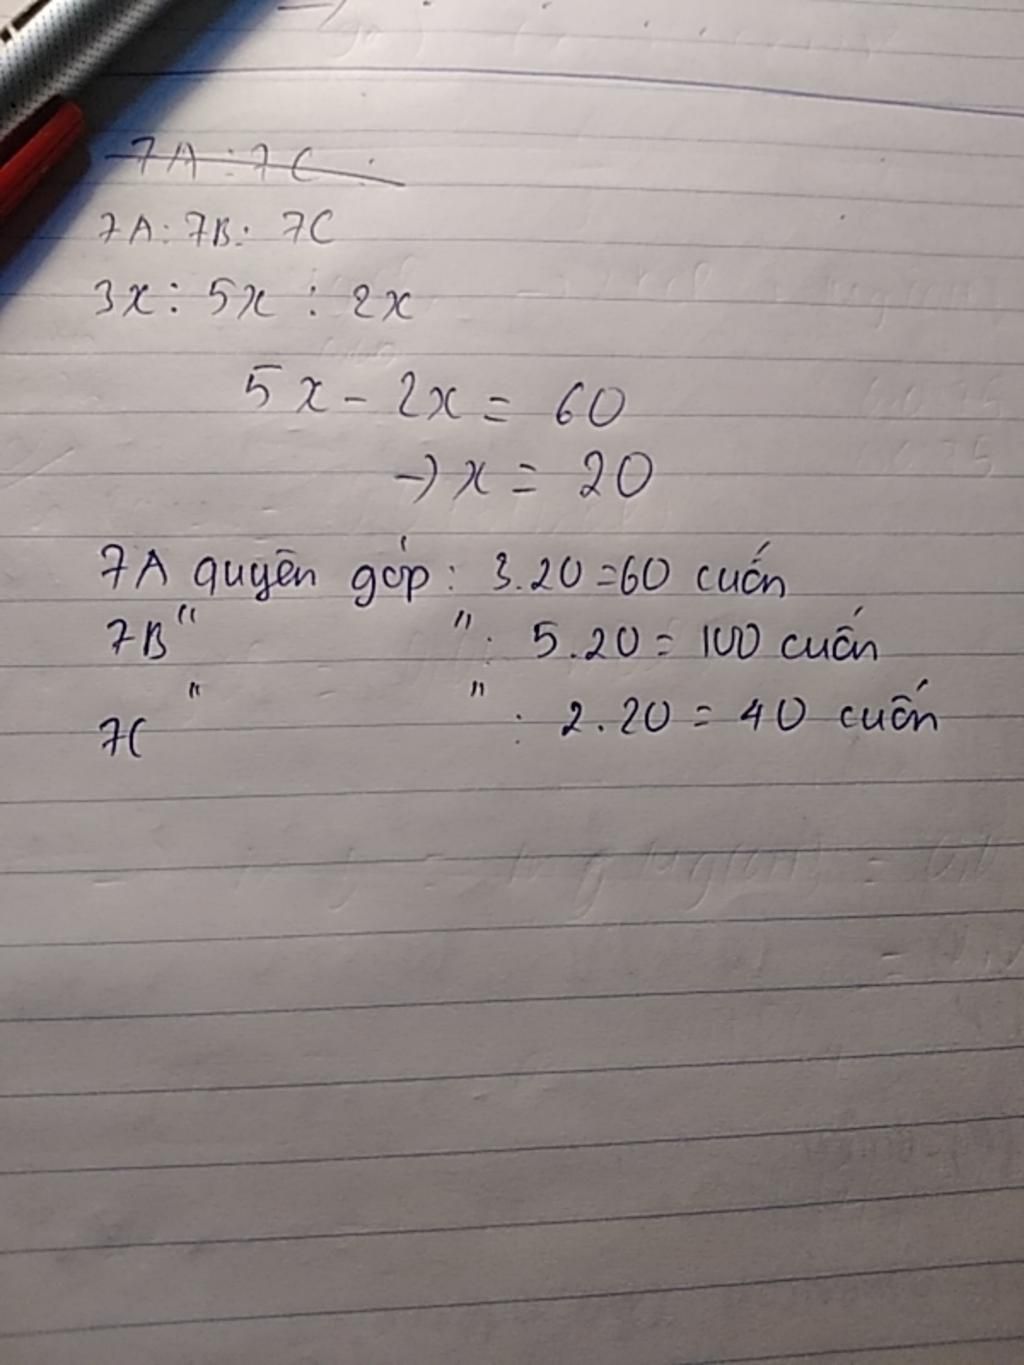 7A : 7C :
7A : 7B : 7C
3x : 5x : 2x
5x - 2x = 60
→ x = 20
7A quyên góp : 3.20 = 60 cuốn
7B " " : 5.20 = 100 cuốn
7C " " : 2.20 = 40 cuốn